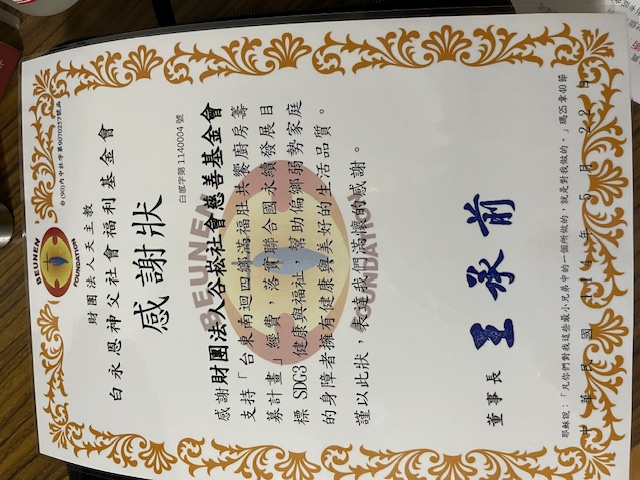 台(90)內中社字第9070257號函
BEUNEN
FOUNDATION
財團法人天主教
白永恩神父社會福利基金會
感謝狀
白感字第1140004號
感謝財團法人谷崧社會慈善基金會
支持「台東南迴四鄉滿福肚共饗廚房籌
募計畫」經費，落實聯合國永續發展目
標 SDG3 健康與福祉，幫助偏鄉弱勢家庭
的身障者擁有健康與美好的生活品質。
謹以此狀，表達我們滿懷的感謝。
BEUNEN
FOUNDATION
董事長 王承前
耶穌說：「凡你們對我這些最小兄弟中的一個所做的，就是對我做的。」瑪25章40節
中華民國114年5月22日